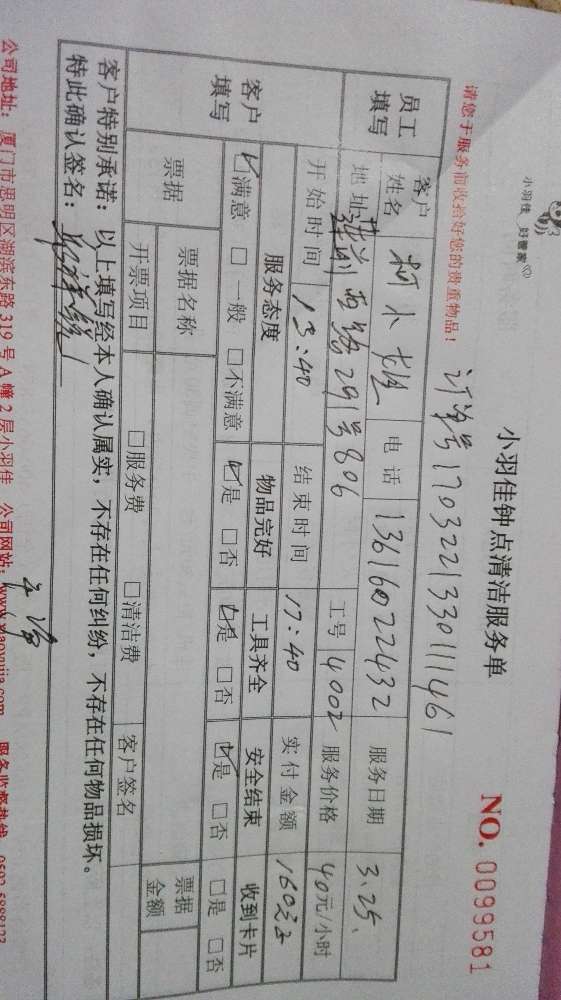 小羽佳 好管家
小羽佳钟点清洁服务单
NO. 0099581
请您于服务前收拾好您的贵重物品！
订单号170322133011461
员工填写 客户姓名 柯小姐 电话 13616022432 服务日期 3.25.
地址 莲前西路291号806 工号 4002 服务价格 40元/小时
开始时间 13:40 结束时间 17:40 实付金额 160元
客户填写 服务态度 物品完好 工具齐全 安全结束 收到卡片
☑满意 □一般 □不满意 ☑是 □否 ☑是 □否 ☑是 □否 □是 □否
票据 票据名称 票据金额
开票项目 □服务费 □清洁费 客户签名
客户特别承诺：以上填写经本人确认属实，不存在任何纠纷，不存在任何物品损坏。
特此确认签名：
公司地址：厦门市思明区湖滨东路319号A幢2层小羽佳 公司网站：www.xiaoyujia.com 服务监督热线：0592-5888123